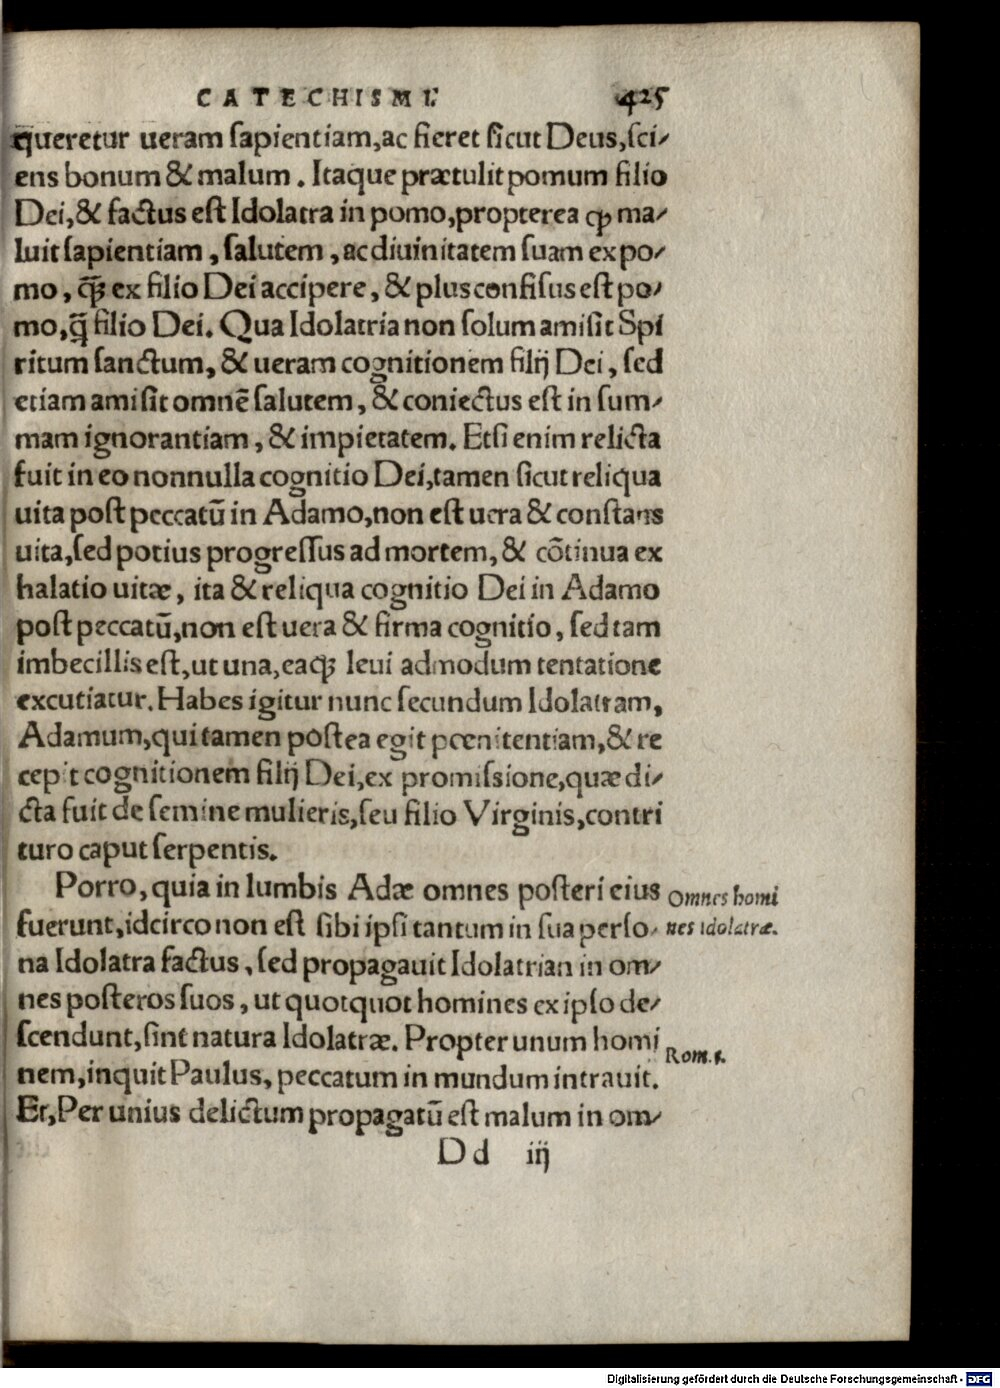 CATECHISMI 425
queretur ueram ſapientiam,ac fieret ſicut Deus,ſci⸗
ens bonum & malum . Itaque prætulit pomum filio
Dei,& factus eſt Idolatra in pomo,propterea ꝙ ma⸗
luit ſapientiam , ſalutem , ac diuinitatem ſuam ex po⸗
mo , ꝙ̃ ex filio Dei accipere , & plus confiſus eſt po⸗
mo,q̃ filio Dei. Qua Idolatria non ſolum amiſit Spi
ritum ſanctum, & ueram cognitionem filij Dei , ſed
etiam amiſit omnẽ ſalutem , & coniectus eſt in ſum⸗
mam ignorantiam , & impietatem. Etſi enim relicta
fuit in eo nonnulla cognitio Dei,tamen ſicut reliqua
uita poſt peccatũ in Adamo,non eſt uera & conſtans
uita,ſed potius progreſſus ad mortem, & cõtinua ex
halatio uitæ, ita & reliqua cognitio Dei in Adamo
poſt peccatũ,non eſt uera & firma cognitio, ſed tam
imbecillis eſt,ut una,eaqꝫ leui admodum tentatione
excutiatur. Habes igitur nunc ſecundum Idolatram,
Adamum,qui tamen poſtea egit pœnitentiam,& re
cepit cognitionem filij Dei,ex promiſsione,quæ di⸗
cta fuit de ſemine mulieris,ſeu filio Virginis,contri
turo caput ſerpentis.
Porro, quia in lumbis Adæ omnes poſteri eius Omnes homi
fuerunt,idcirco non eſt ſibi ipſi tantum in ſua perſo⸗ nes idolatræ.
na Idolatra factus , ſed propagauit Idolatrian in om⸗
nes poſteros ſuos , ut quotquot homines ex ipſo de⸗
ſcendunt,ſint natura Idolatræ. Propter unum homi
Rom.5.
nem,inquit Paulus, peccatum in mundum intrauit.
Et,Per unius delictum propagatũ eſt malum in om⸗
D d iij
Digitalisierung gefördert durch die Deutsche Forschungsgemeinschaft - DFG